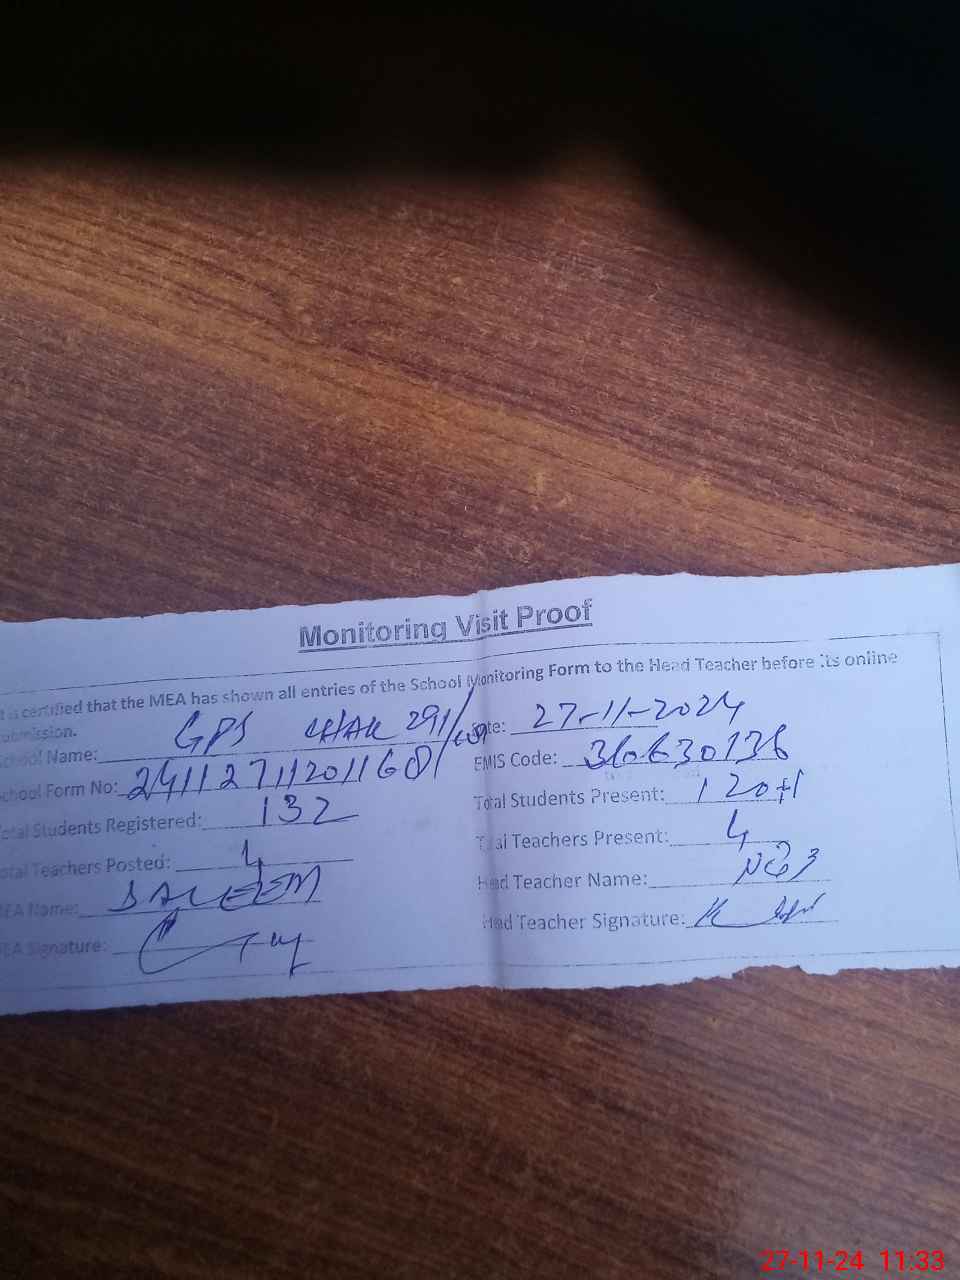 Monitoring Visit Proof
It is certified that the MEA has shown all entries of the School Monitoring Form to the Head Teacher before its online
submission.
School Name: GPS CHAK 291/
Date: 27-11-2024
School Form No:
EMIS Code: 36630136
Total Students Registered: 132
Total Students Present: 120+1
Total Teachers Posted: 4
Total Teachers Present: 4
MEA Name: SALEEM
Head Teacher Name:
MEA Signature:
Head Teacher Signature:
27-11-24 11:33